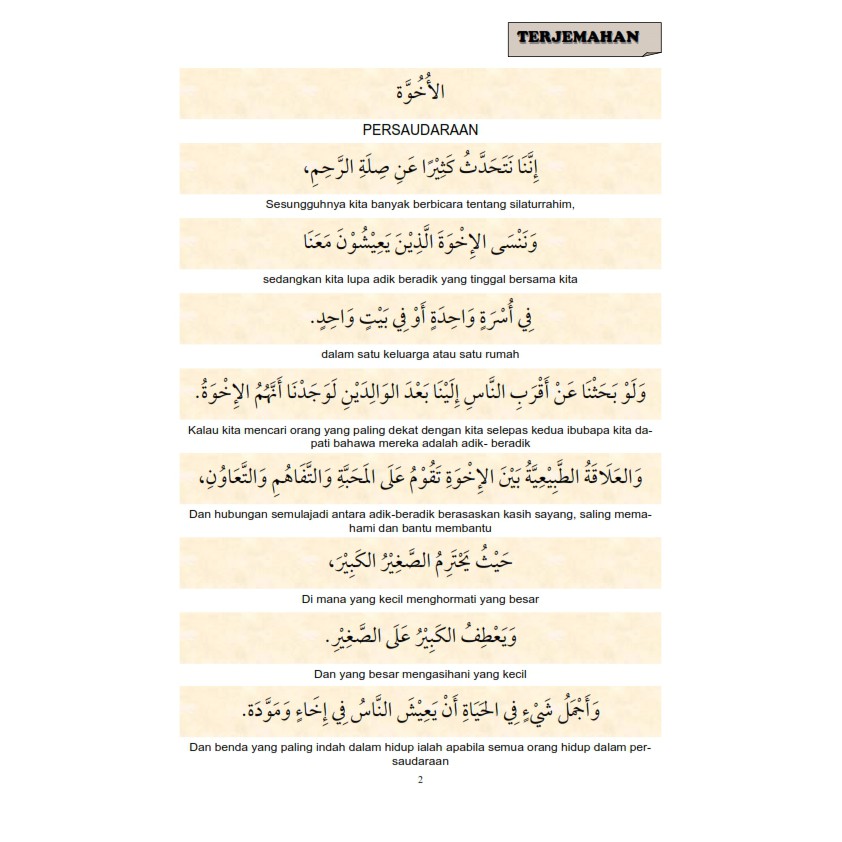 TERJEMAHAN
الأُخُوَّة
PERSAUDARAAN
إِنَّنَا نَتَحَدَّثُ كَثِيْرًا عَنِ صِلَةِ الرَّحِمِ،
Sesungguhnya kita banyak berbicara tentang silaturrahim,
وَنَنْسَى الإِخْوَةَ الَّذِيْنَ يَعِيْشُوْنَ مَعَنَا
sedangkan kita lupa adik beradik yang tinggal bersama kita
فِي أُسْرَةٍ وَاحِدَةٍ أَوْ فِي بَيْتٍ وَاحِدٍ.
dalam satu keluarga atau satu rumah
وَلَوْ بَحَثْنَا عَنْ أَقْرَبِ النَّاسِ إِلَيْنَا بَعْدَ الوَالِدَيْنِ لَوَجَدْنَا أَنَّهُمُ الإِخْوَةُ.
Kalau kita mencari orang yang paling dekat dengan kita selepas kedua ibubapa kita da-
pati bahawa mereka adalah adik- beradik
وَالعَلَاقَةُ الطَّبِيْعِيَّةُ بَيْنَ الإِخْوَةِ تَقُوْمُ عَلَى المَحَبَّةِ وَالتَّفَاهُمِ وَالتَّعَاوُنِ،
Dan hubungan semulajadi antara adik-beradik berasaskan kasih sayang, saling mema-
hami dan bantu membantu
حَيْثُ يَحْتَرِمُ الصَّغِيْرُ الكَبِيْرَ،
Di mana yang kecil menghormati yang besar
وَيَعْطِفُ الكَبِيْرُ عَلَى الصَّغِيْرِ.
Dan yang besar mengasihani yang kecil
وَأَجْمَلُ شَيْءٍ فِي الحَيَاةِ أَنْ يَعِيْشَ النَّاسُ فِي إِخَاءٍ وَمَوَّدَة.
Dan benda yang paling indah dalam hidup ialah apabila semua orang hidup dalam per-
saudaraan
2